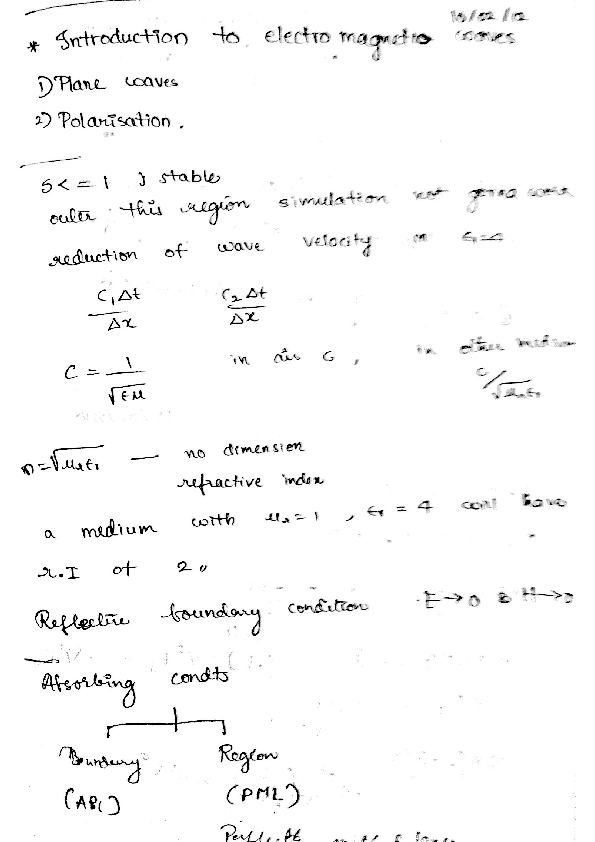 10/02/12
* Introduction to electro magnetic waves
1) Plane waves
2) Polarisation.
S<=1 } stable
outer this region simulation not going
reduction of wave velocity in εr=4
C₁Δt/Δx C₂Δt/Δx
C = 1/√εμ in air C, in other medium C/√μrεr
n=√μrεr — no dimension
refractive index
a medium with μr=1, εr = 4 will have
r.I of 2,,
Reflective boundary condition E→0 & H→0
Absorbing condts
Boundary Region
(ABC) (PML)